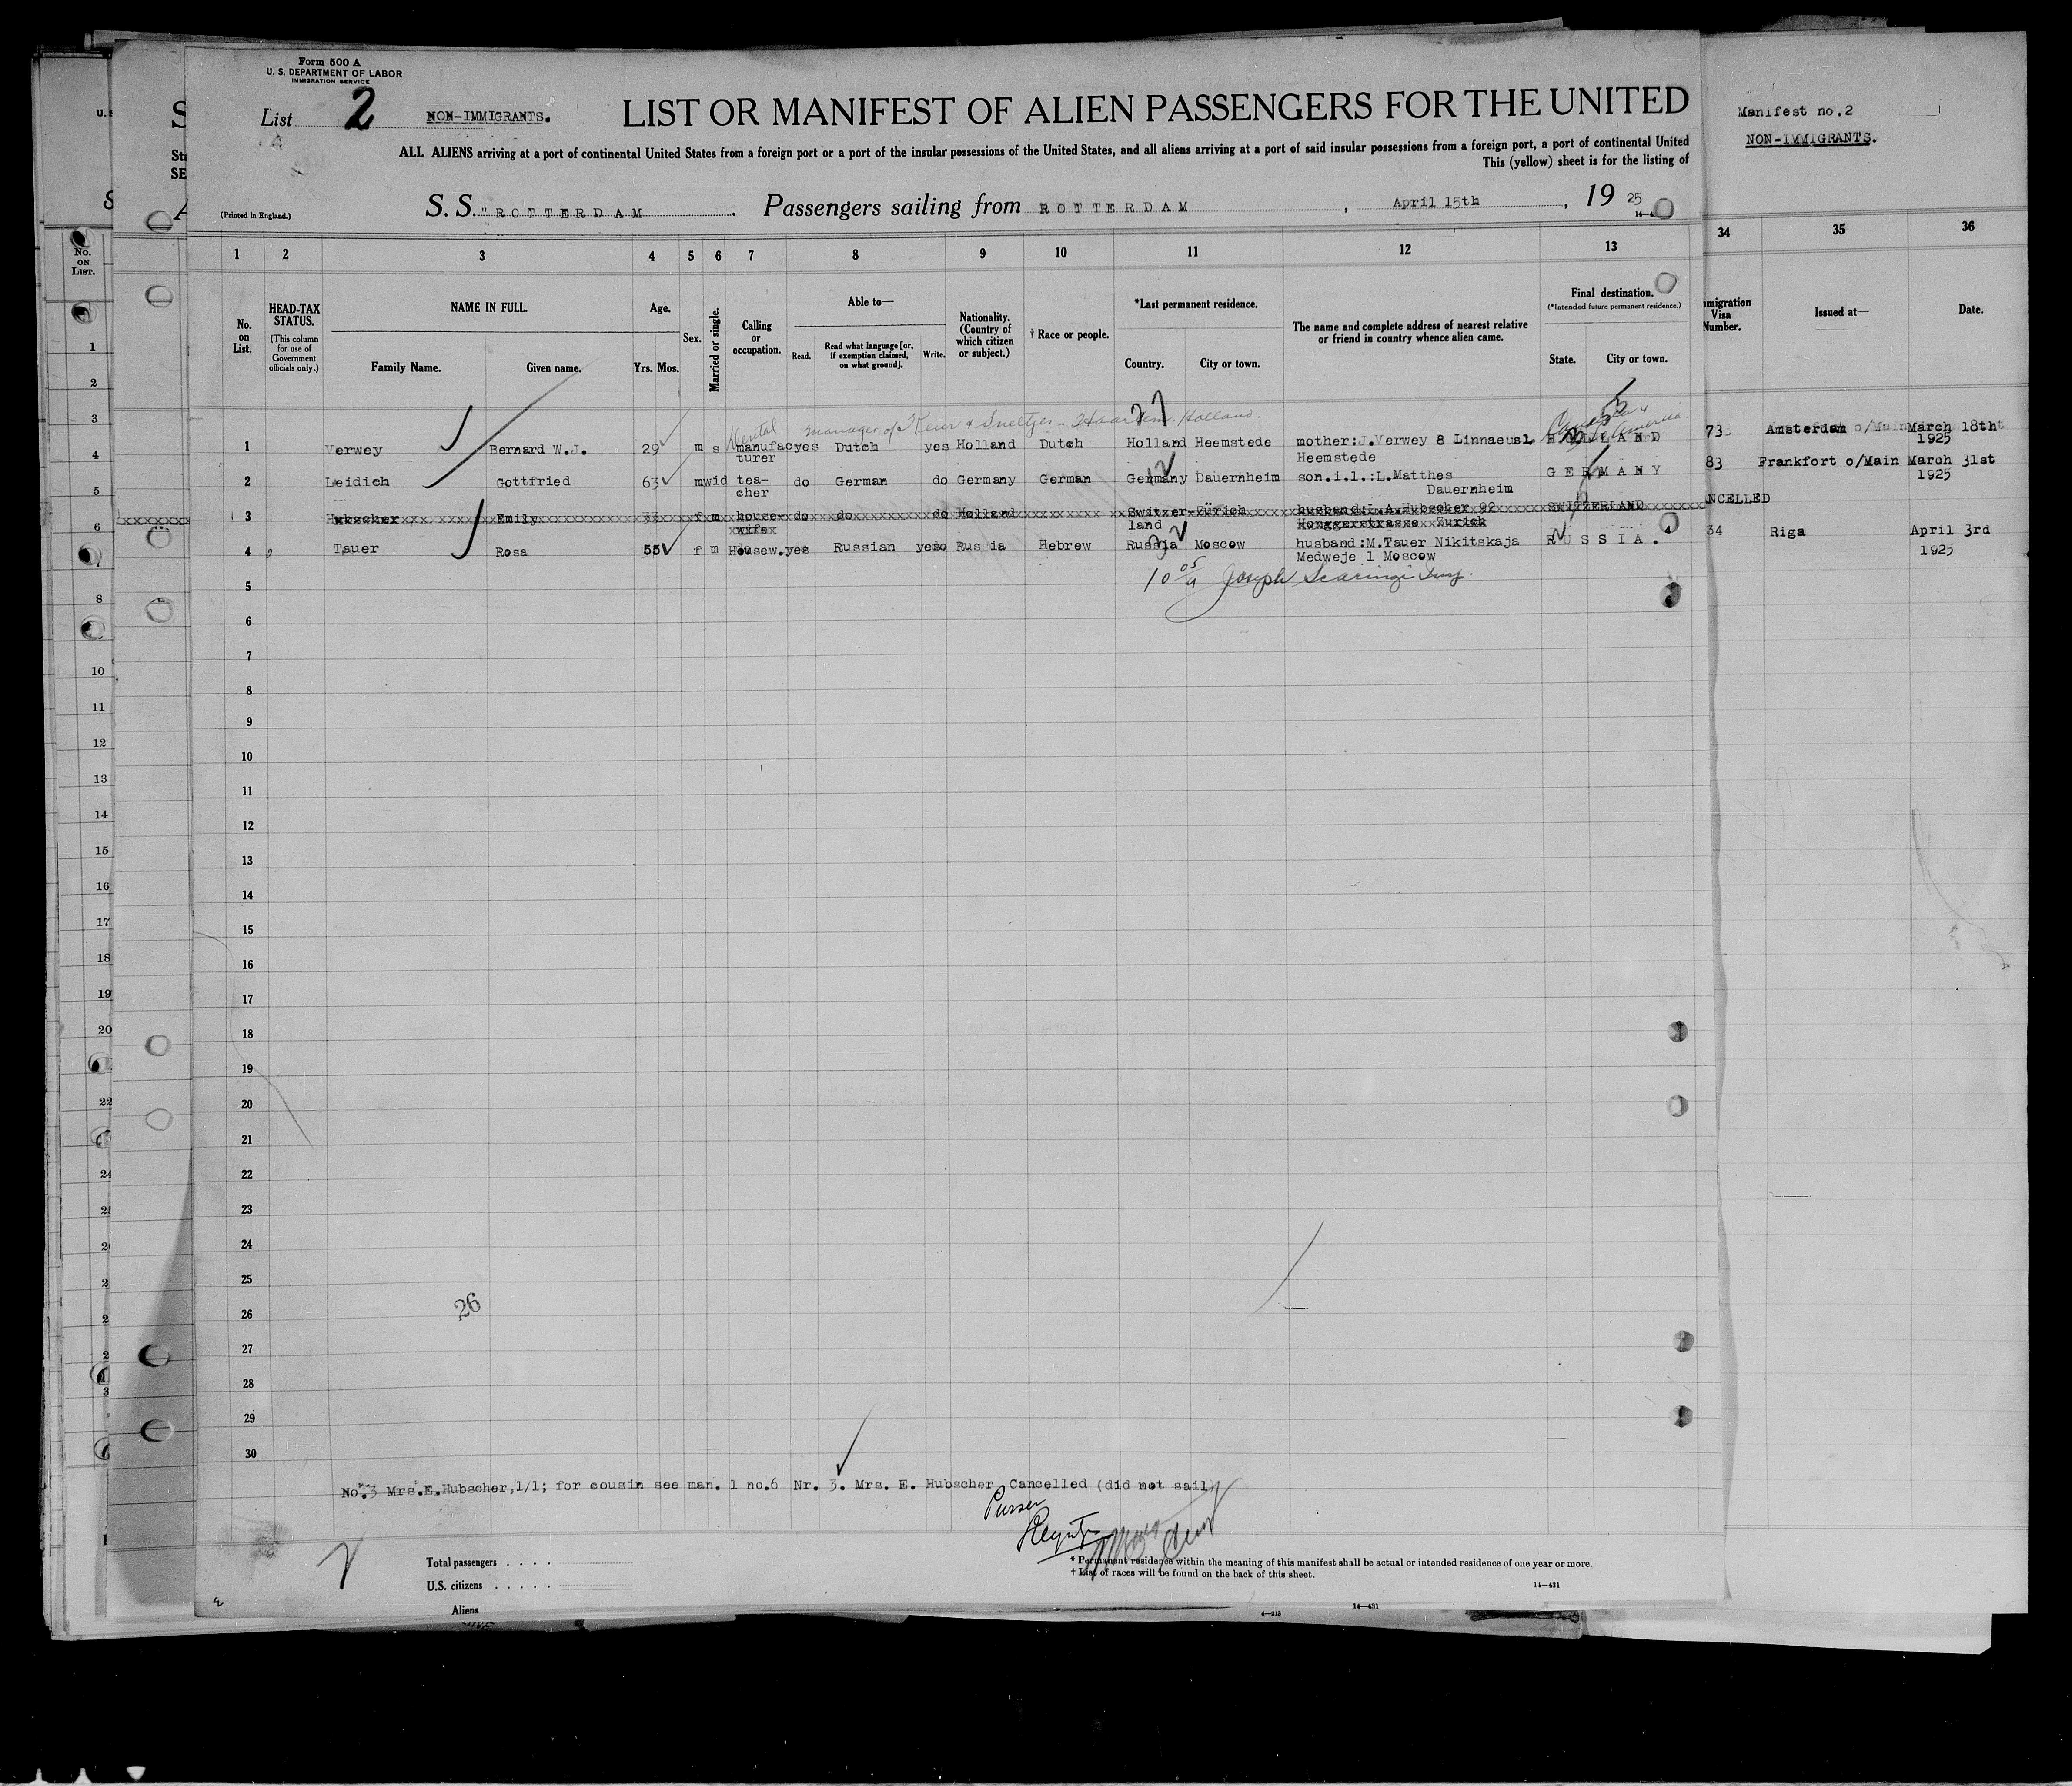 Form 500 A
U. S. DEPARTMENT OF LABOR
IMMIGRATION SERVICE
List 2 NON-IMMIGRANTS.
LIST OR MANIFEST OF ALIEN PASSENGERS FOR THE UNITED
Manifest no.2
NON-IMMIGRANTS.
ALL ALIENS arriving at a port of continental United States from a foreign port or a port of the insular possessions of the United States, and all aliens arriving at a port of said insular possessions from a foreign port, a port of continental United
This (yellow) sheet is for the listing of
(Printed in England.)
S. S. "ROTTERDAM . Passengers sailing from ROTTERDAM , April 15th , 19 25
1 2 3 4 5 6 7 8 9 10 11 12 13 34 35 36
No. on List.
HEAD-TAX STATUS.
(This column for use of Government officials only.)
NAME IN FULL.
Family Name. Given name.
Age.
Yrs. Mos.
Sex.
Married or single.
Calling or occupation.
Able to—
Read.
Read what language [or, if exemption claimed, on what ground].
Write.
Nationality. (Country of which citizen or subject.)
† Race or people.
*Last permanent residence.
Country. City or town.
The name and complete address of nearest relative or friend in country whence alien came.
Final destination.
(*Intended future permanent residence.)
State. City or town.
migration Visa Number.
Issued at—
Date.
manager of Keur & Sneltjes - Haarlem. Holland.
1 Verwey Bernard W.J. 29 m s manufac yes Dutch yes Holland Dutch Holland Heemstede mother:J.Verwey 8 Linnaeusl. HOLLAND 73 Amsterdam March 18th
turer Heemstede 1925
2 Leidich Gottfried 63 m wid tea- do German do Germany German Germany Dauernheim son.i.l.:L.Matthes GERMANY 83 Frankfort o/Main March 31st
cher Dauernheim 1925
3 Hubscher Emily f m house- do do do Holland Switzer- Zürich husband:L.A.Hubscher 92 SWITZERLAND NCELLED
wife land Honggerstrasse Zurich
4 Tauer Rosa 55 f m Housew. yes Russian yes Rus ia Hebrew Russia Moscow husband:M.Tauer Nikitskaja RUSSIA. 34 Riga April 3rd
Medweje 1 Moscow 1925
5
Joseph Scaringi Insp.
6
7
8
9
10
11
12
13
14
15
16
17
18
19
20
21
22
23
24
25
26
26
27
28
29
30
No.3 Mrs.E.Hubscher,1/1; for cousin see man. 1 no.6 Nr. 3. Mrs. E. Hubscher Cancelled (did not sail)
Purser
Total passengers . . . .
U.S. citizens . . . . .
Aliens
* Permanent residence within the meaning of this manifest shall be actual or intended residence of one year or more.
† List of races will be found on the back of this sheet.
14—431
14—431